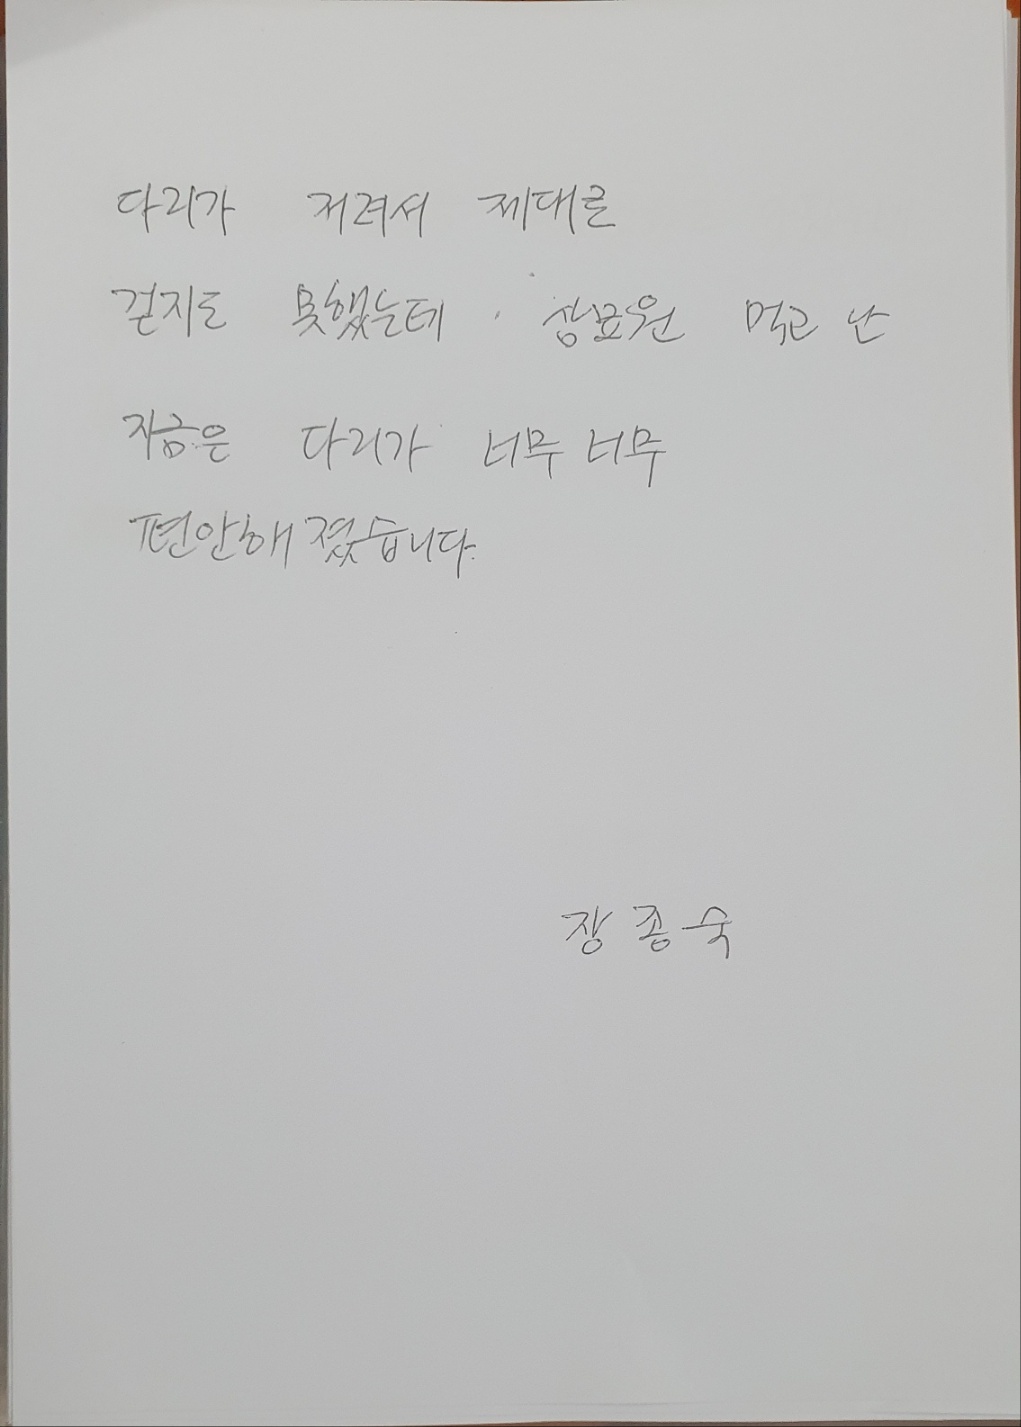 다리가 저려서 제대로
걷지도 못했는데. 상묘원 먹고 난
지금은 다리가 너무 너무
편안해 졌습니다.
장종숙